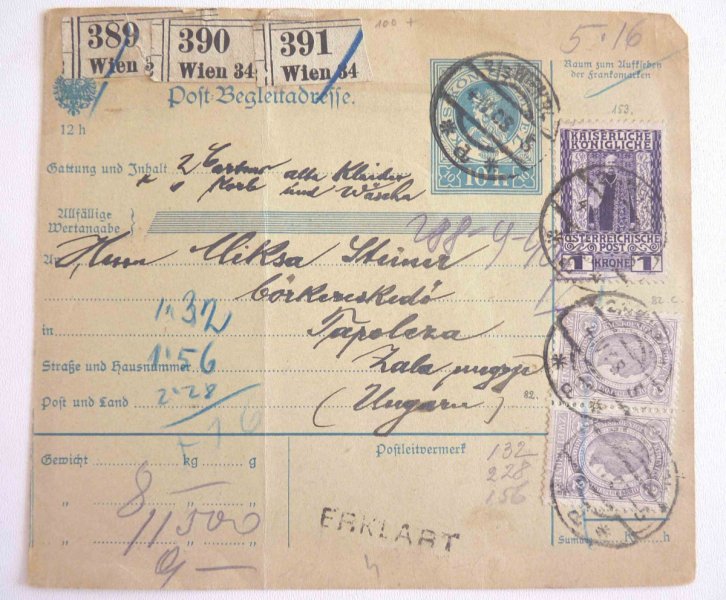 389
Wien 3
390
Wien 34
391
Wien 34
100 +
5·16
Raum zum Aufkleben
der Frankomarken
Post-Begleitadresse.
12 h
10 H
153.
KAISERLICHE
KÖNIGLICHE
ÖSTERREICHISCHE
POST
1 KRONE 1
Gattung und Inhalt 2 alte Kleider
1 Korb und Wäsche
Allfällige
Wertangabe
288-9-
An Herrn Miksa Steiner
in Tapolcza
1·32
Straße und Hausnummer Zala megye
1·56
Post und Land (Ungarn)
2·28
82.
82. c
Gewicht kg g
Postleitvermerk
132
228
156
8 —
11 500
9 —
ERKLÄRT
Summa K h